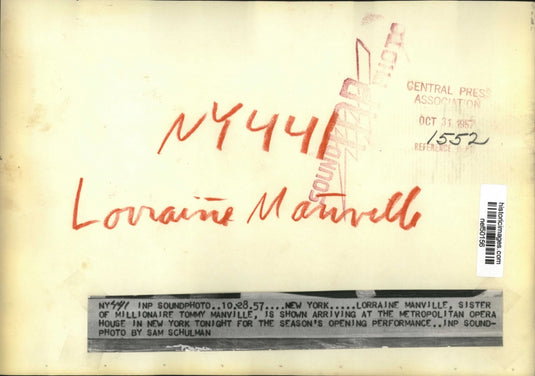 SOUNDPHOTO
CENTRAL PRESS
ASSOCIATION
OCT 31 1957
1552
REFERENCE
NY441
Lorraine Manville
historicimages.com
net50156
NY441 INP SOUNDPHOTO..10.28.57....NEW YORK.....LORRAINE MANVILLE, SISTER
OF MILLIONAIRE TOMMY MANVILLE, IS SHOWN ARRIVING AT THE METROPOLITAN OPERA
HOUSE IN NEW YORK TONIGHT FOR THE SEASON'S OPENING PERFORMANCE..INP SOUND-
PHOTO BY SAM SCHULMAN